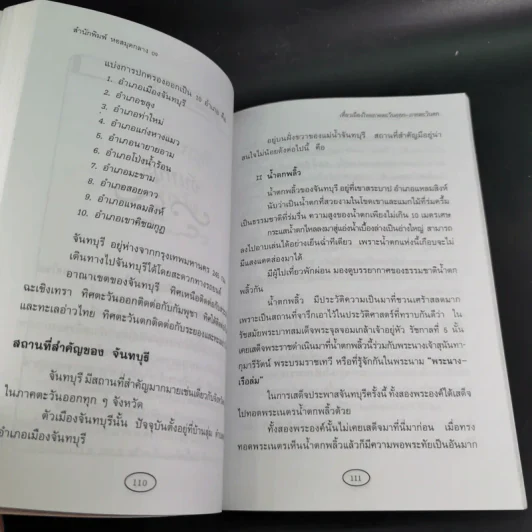 สำนักพิมพ์ หอสมุดกลาง 09
แบ่งการปกครองออกเป็น 10 อำเภอ
1. อำเภอเมืองจันทบุรี
2. อำเภอขลุง
3. อำเภอท่าใหม่
4. อำเภอแก่งหางแมว
5. อำเภอนายายอาม
6. อำเภอโป่งน้ำร้อน
7. อำเภอมะขาม
8. อำเภอสอยดาว
9. อำเภอแหลมสิงห์
10. อำเภอเขาคิชฌกูฏ
จันทบุรี อยู่ห่างจากกรุงเทพมหานคร
เดินทางไปจันทบุรีได้โดยสะดวกทางรถยนต์
อาณาเขตของจันทบุรี ทิศเหนือติดต่อกับ
ฉะเชิงเทรา ทิศตะวันออกติดต่อกับกัมพูชา
และทะเลอ่าวไทย ทิศตะวันตกติดต่อกับระยองและ
สถานที่สำคัญของ จันทบุรี
จันทบุรี มีสถานที่สำคัญมากมายเช่นเดียวกับจังหวัด
ในภาคตะวันออกทุก ๆ จังหวัด
ตัวเมืองจันทบุรีนั้น ปัจจุบันตั้งอยู่ที่บ้านลุ่ม
อำเภอเมืองจันทบุรี
110
อยู่บนฝั่งขวาของแม่น้ำจันทบุรี สถานที่สำคัญมีอยู่น่า
สนใจไม่น้อยดังต่อไปนี้ คือ
น้ำตกพลิ้ว
น้ำตกพลิ้วของจันทบุรี อยู่ที่เขาสระบาป อำเภอแหลมสิงห์
นับว่าเป็นน้ำตกที่สวยงามในโขดเขาและแมกไม้ที่ร่มครึ้ม
เป็นธรรมชาติที่ร่มรื่น ความสูงของน้ำตกเพียงไม่เกิน 10 เมตรเศษ
กระแสน้ำตกไหลลงมาสู่แอ่งน้ำเบื้องล่างเป็นอ่างใหญ่ สามารถ
ลงไปอาบเล่นได้อย่างเย็นฉ่ำทีเดียว เพราะน้ำตกแห่งนี้เกือบจะไม่
มีแสงแดดส่องมาได้
มีผู้ไปเที่ยวพักผ่อน มองดูบรรยากาศของธรรมชาติน้ำตก
พลิ้วกัน
น้ำตกพลิ้ว มีประวัติความเป็นมาที่ชวนเศร้าสลดมาก
เพราะเป็นสถานที่จารึกเอาไว้ในประวัติศาสตร์ที่ทราบกันดีว่า ใน
รัชสมัยพระบาทสมเด็จพระจุลจอมเกล้าเจ้าอยู่หัว รัชกาลที่ 5 นั้น
เคยเสด็จพระราชดำเนินมาที่น้ำตกพลิ้วนี้ร่วมกับพระนางเจ้าสุนันทา-
กุมารีรัตน์ พระบรมราชเทวี หรือที่รู้จักกันในพระนาม "พระนาง-
เรือล่ม"
ในการเสด็จประพาสจันทบุรีครั้งนี้ ทั้งสองพระองค์ได้เสด็จ
ไปทอดพระเนตรน้ำตกพลิ้วด้วย
ทั้งสองพระองค์นั้นไม่เคยเสด็จมาที่นี่มาก่อน เมื่อทรง
ทอดพระเนตรเห็นน้ำตกพลิ้วแล้วก็มีความพอพระทัยเป็นอันมาก
111